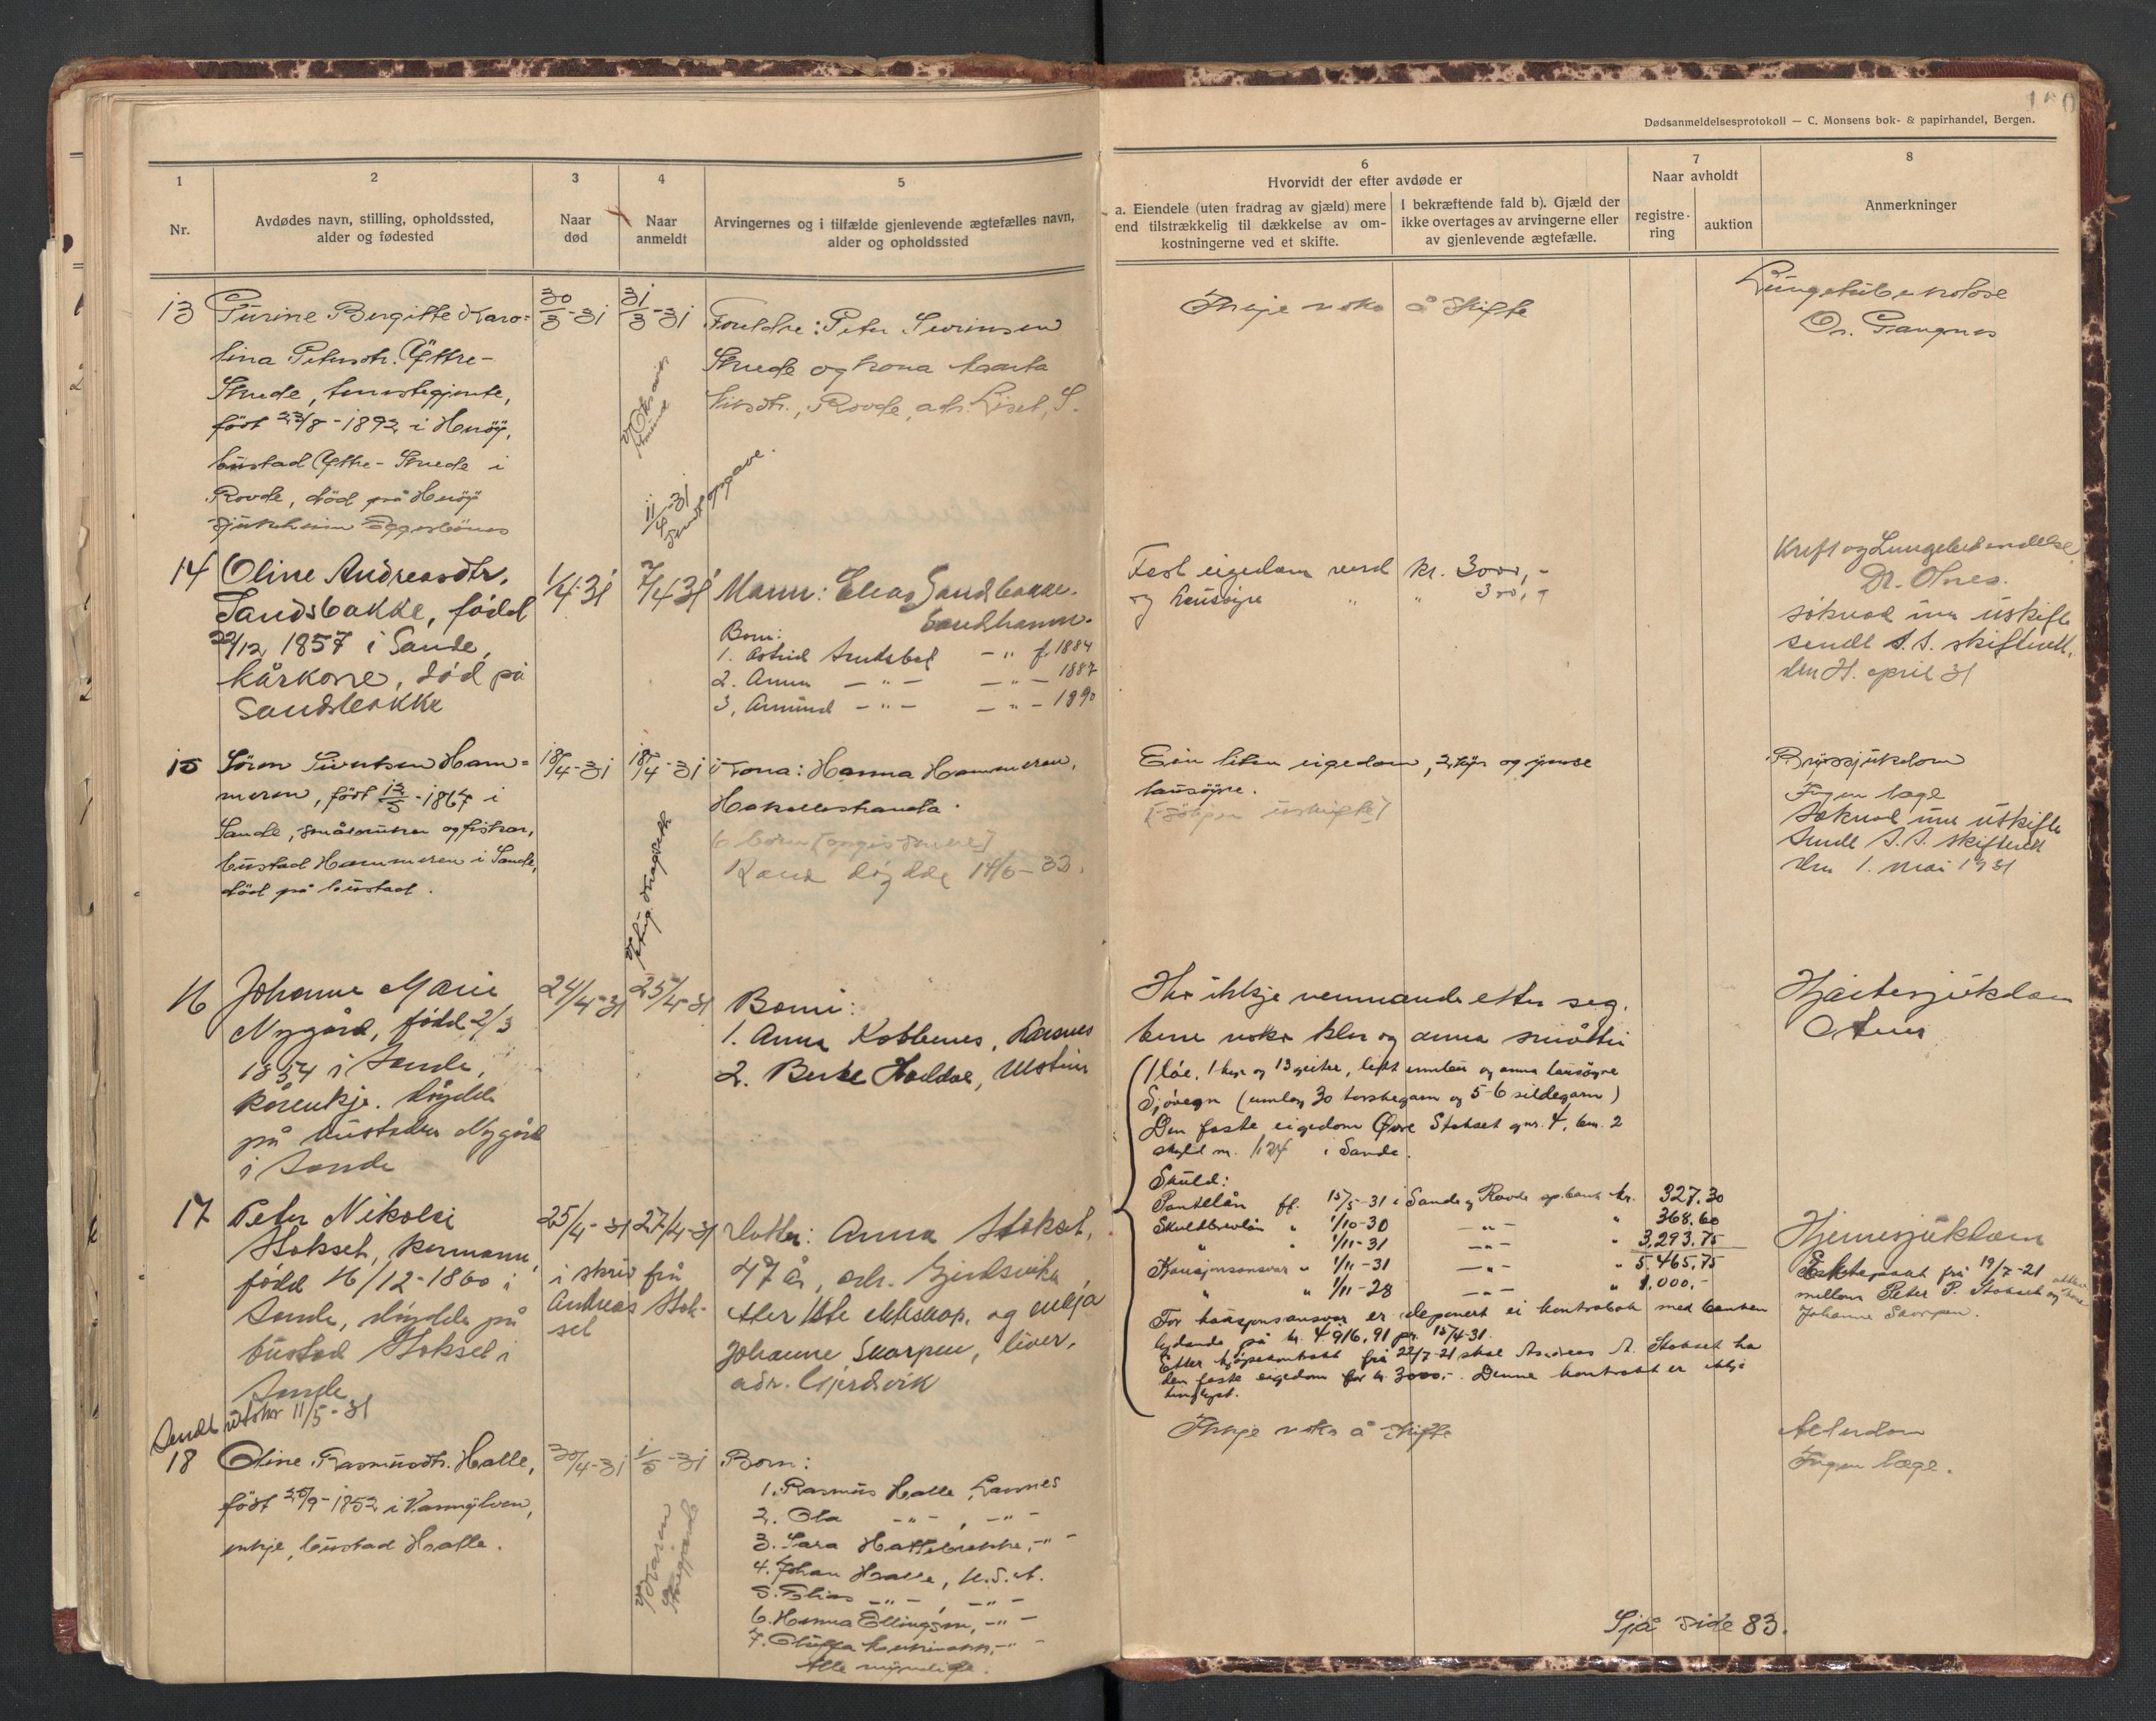 Dødsanmeldelsesprotokoll — C. Monsens bok- & papirhandel, Bergen.
1
Nr.
2
Avdødes navn, stilling, opholdssted,
alder og fødested
3
Naar
død
4
Naar
anmeldt
5
Arvingernes og i tilfælde gjenlevende ægtefælles navn,
alder og opholdssted
6
Hvorvidt der efter avdøde er
a. Eiendele (uten fradrag av gjæld) mere
end tilstrækkelig til dækkelse av om-
kostningerne ved et skifte.
I bekræftende fald b). Gjæld der
ikke overtages av arvingerne eller
av gjenlevende ægtefælle.
7
Naar avholdt
registre-
ring
auktion
8
Anmerkninger
13
Bergitte Karo-
lina Petersdr. Yttre-
født 23/8-1892 i Herøy,
bustad Yttre- i
Rovde, død på Herøy
sjukeheim Eggesbønes
30/3-31
31/3-31
11/4-31
Sendt opgave.
Foreldre: Peter Severinsen
og kona
Rovde, adr. Liset, S.
Ikkje noko å skifte
Lungetuberkolose
Dr.
14
Oline Andreasdtr.
Sandsbakke, född
22/12 1857 i Sande,
kårkone, död på
Sandsbakke
1/4 31
7/4 31
Mann: Elias Sandbakke.
Sandshamn.
Born:
1. Astrid - " f. 1884
2. Anna - " - - " - 1887
3. Amund - " - - " - 1890
Fast eigedom verd kr. 3000,-
og lausøyre " " 300,-
Kreft og Lungebetendelse
Dr. Otnes.
söknad um uskifte
sendt S.S. skifterett.
den 21. april 31
15
Sören Sivertsen Ham-
meren, født 12/5-1867 i
Sande, småbruker og fiskar,
bustad Hammeren i Sande,
död på bustad.
18/4-31
18/4-31
Kona: Hanna Hammeren,
Hakallestranda.
6 born
Kona döydde 14/6-33.
Ein liten eigedom, 2 kyr og ymse
lausøyre.
Brystsjukdom
Ingen læge
Søknad um uskifte
sendt S.S. skifterett
den 1. mai 1931
16
Johanne Marie
Nygård, född 2/3
1854 i Sande,
kårenkje. Döydde
på bustaden Nygård
i Sande
24/4-31
25/4-31
Born:
1. Anna Koblenes, Larsnes
2. Berte Haddal, Ulstein
Har ikkje nemnande etter seg.
berre noko klær og anna småtteri
Hjartesjukdom
Otnes
17
Peter Nikolai
Stokset, kårmann,
född 16/12-1860 i
Sande, döydde på
bustad Stokset i
Sande
Sendt utskr 11/5-31
25/4-31
27/4-31
i skriv frå
Andreas Stok-
set
Dotter: Anna Stokset,
47 år, adr. Gjerdsvika,
etter 1ste ekteskap, og enkja
Johanne Skorpen, lever,
adr. Gjerdsvik
(1 løe, 1 kyr og 13 geiter, litt innbu og anna lausøyre
Sjøvegn (umlag 30 torskegarn og 5-6 sildegarn)
Den faste eigedom Øvre Stokset gnr. 4, bn. 2
skyld m. 1,24 i Sande.
Skuld:
Pantelån ff. 15/5-31 i Sande og Rovde sp.bank kr. 327.30
Skuldbrevlån " 1/10-30 - " - " 368.60
" " 1/11-31 - " - " 3.293.75
Kausjonsansvar " 1/11-31 - " - " 5.465.75
" " 1/11-28 - " - " 1.000,-
For kausjonsansvar er deponert ei kontrabok med banken
lydande på kr. 4916,91 pr. 15/4-31.
Etter kjøpekontrakt frå 22/7-21 skal Andreas A. Stokset ha
den faste eigedom for kr. 3000,-. Denne kontrakt er ikkje
tinglyst.
Hjernesjukdom
Ektepakt frå 19/7-21
mellom Peter P. Stokset og
Johanne Skorpen.
18
Oline Rasmusdtr. Halle,
født 25/9-1852 i Vannylven,
enkje, bustad Halle.
30/4-31
1/5-31
Born:
1. Rasmus Halle, Larsnes
2. Ola - " - , - " -
3. Sara Hattebrekke, - " -
4. Johan Halle, U.S.A.
5. Elias - " - , - " -
6. Hanna Ellingsen, - " -
7.
Alle myndige.
Ikkje noko å skifte
Alderdom
Ingen læge.
Sjå side 83.